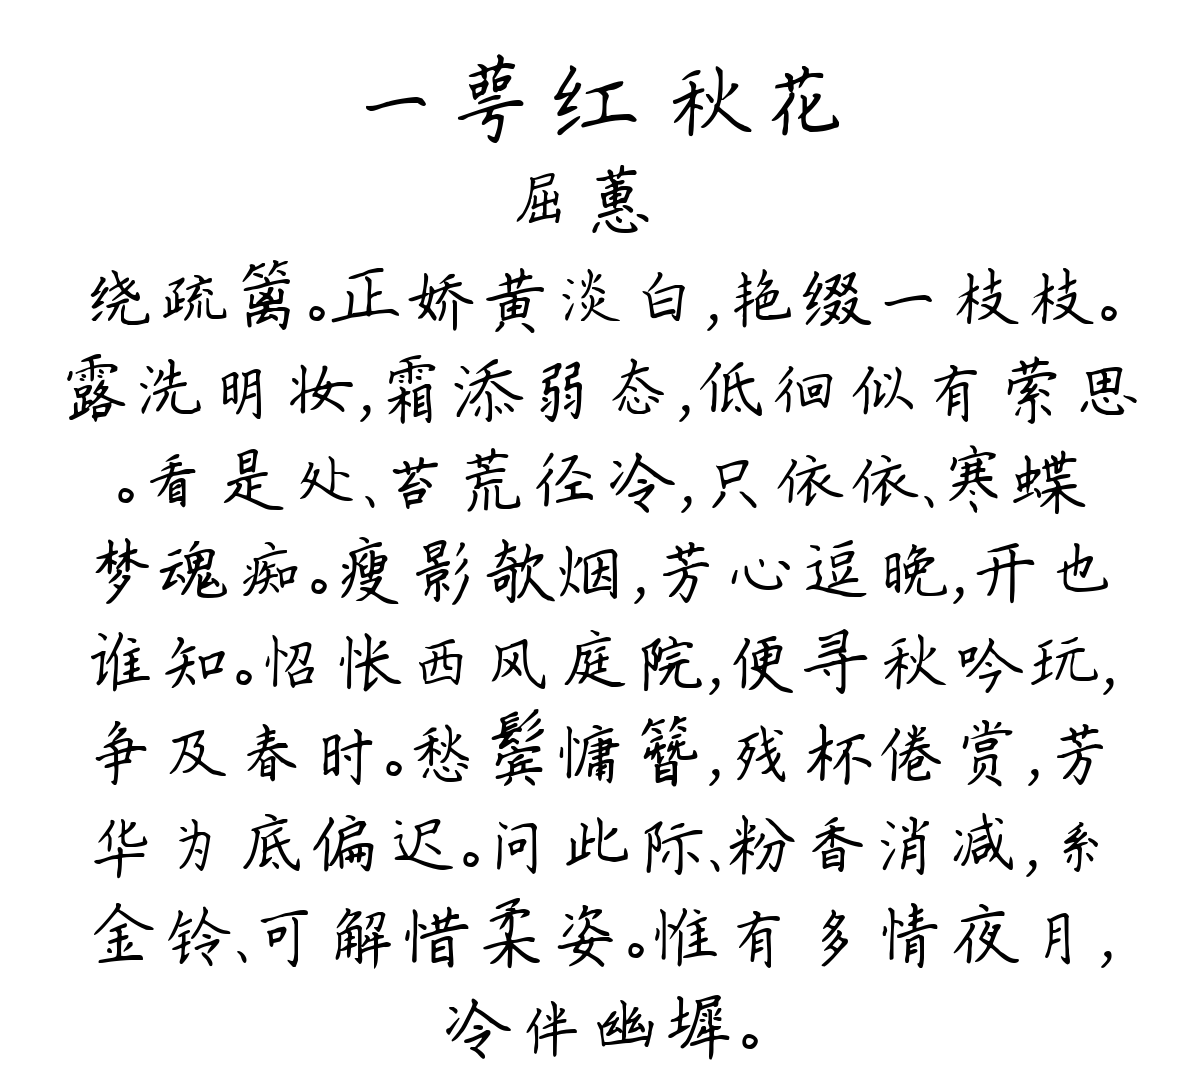 一萼红 秋花
屈蕙
绕疏篱。正娇黄淡白,艳缀一枝枝。
露洗明妆,霜添弱态,低徊似有萦思
。看是处、苔荒径冷,只依依、寒蝶
梦魂痴。瘦影欹烟,芳心逗晚,开也
谁知。怊怅西风庭院,便寻秋吟玩,
争及春时。愁鬓慵簪,残杯倦赏,芳
华为底偏迟。问此际、粉香消减,系
金铃、可解惜柔姿。惟有多情夜月,
冷伴幽墀。